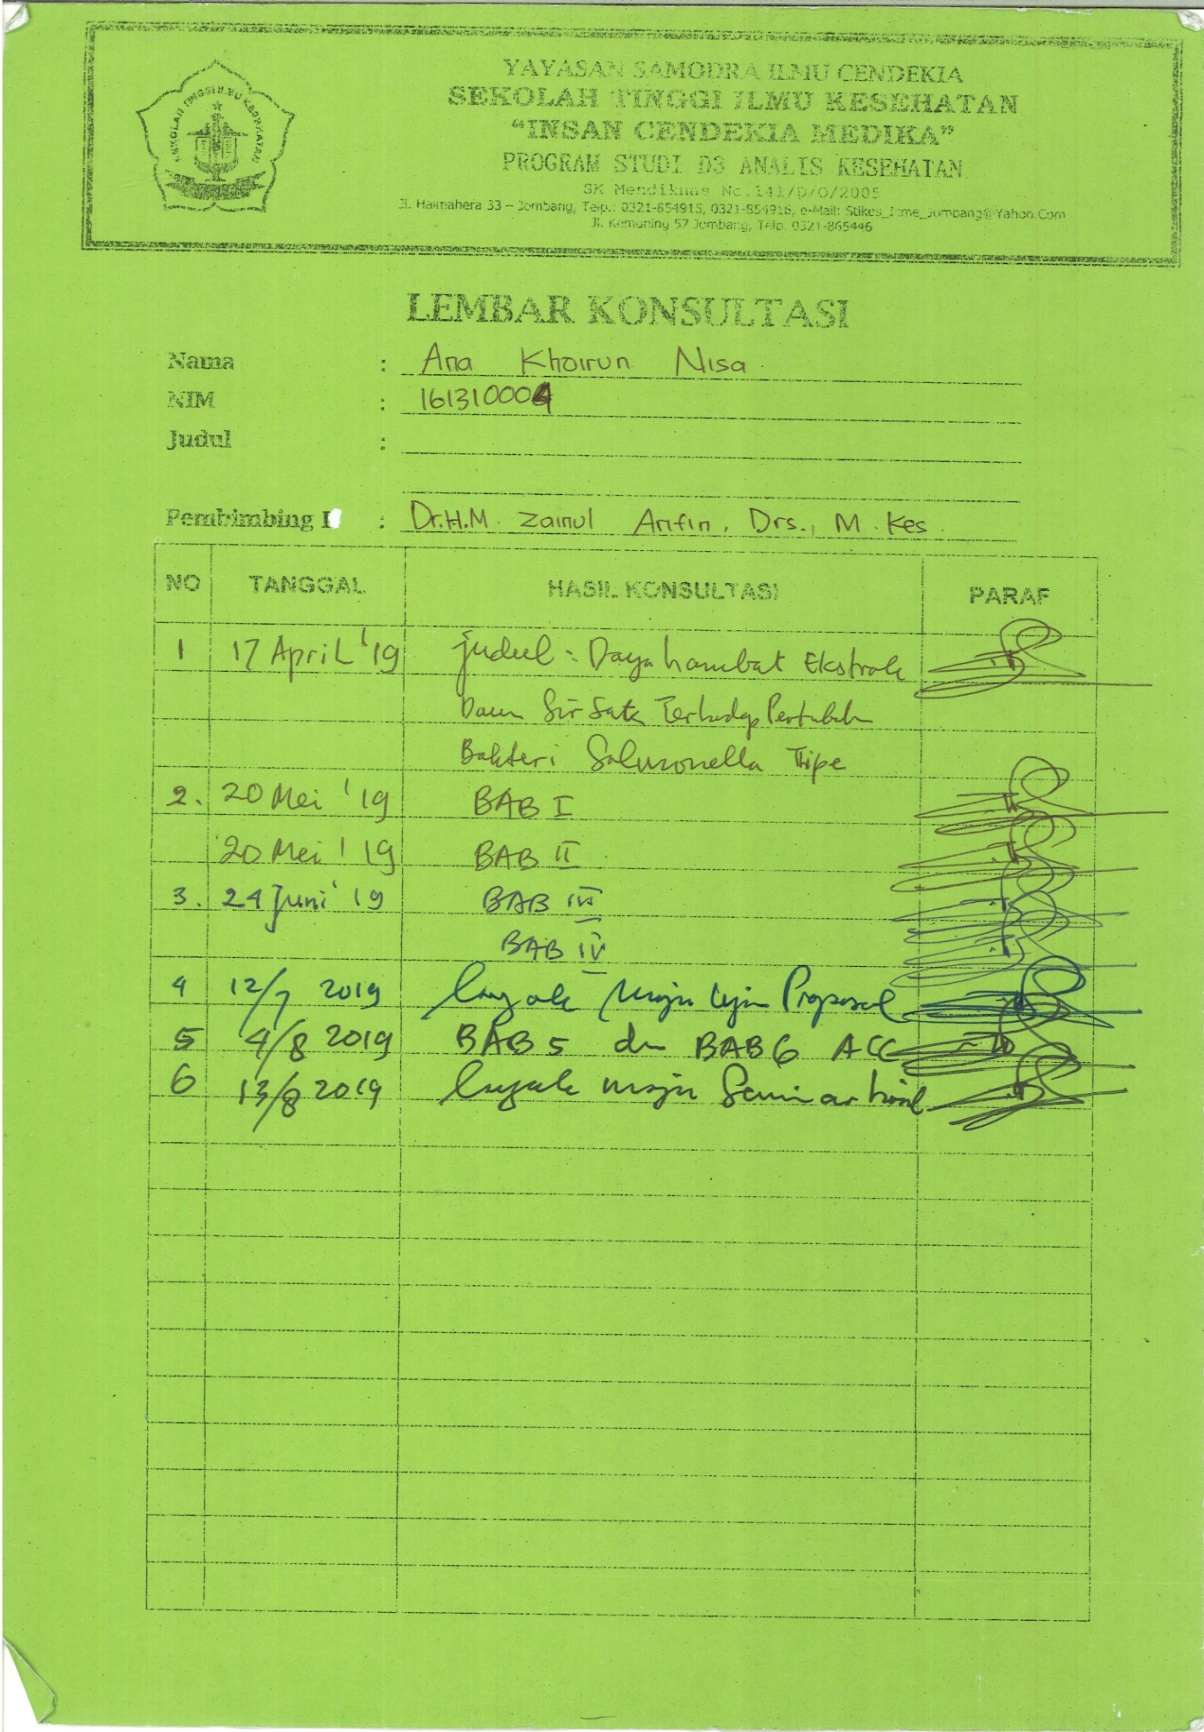 YAYASAN SAMODRA ILMU CENDEKIA
SEKOLAH TINGGI ILMU KESEHATAN
"INSAN CENDEKIA MEDIKA"
PROGRAM STUDI D3 ANALIS KESEHATAN
SK Mendiknas No.141/D/O/2005
Jl. Halmahera 33 – Jombang, Telp.: 0321-854915, 0321-854916, e-Mail: Stikes_Icme_Jombang@Yahoo.Com
Jl. Kemuning 57 Jombang, Telp. 0321-865446
SEKOLAH TINGGI ILMU KESEHATAN
LEMBAR KONSULTASI
Nama : Ana Khoirun Nisa
NIM : 161310004
Judul :
Pembimbing I : Dr.H.M. Zainul Arifin, Drs., M. Kes.
NO TANGGAL HASIL KONSULTASI PARAF
1 17 April '19 Judul : Daya hambat Ekstrak
Daun Sirsak Terhadap
Bakteri Salmonella
2. 20 Mei '19 BAB I
20 Mei '19 BAB II
3. 24 Juni '19 BAB III
BAB IV
4 12/7 2019 layak maju Ujian Proposal
5 4/8 2019 BAB 5 dn BAB 6 ACC
6 13/8 2019 layak maju Seminar hasil